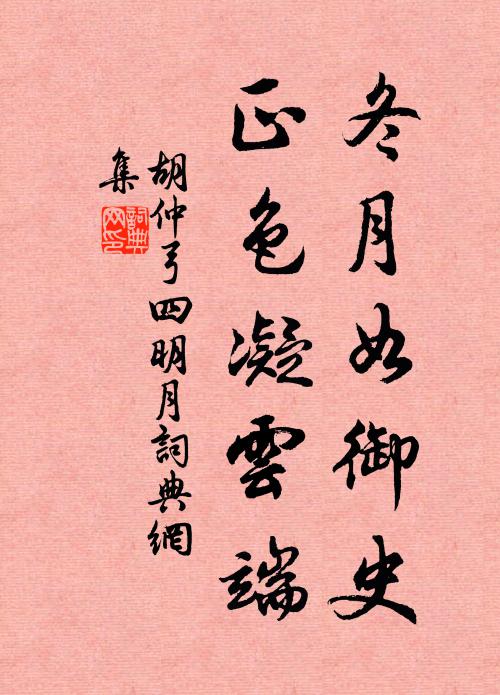 冬月如御史
正色凝雲端
胡仲弓四明月詞典網
集
詞典網印